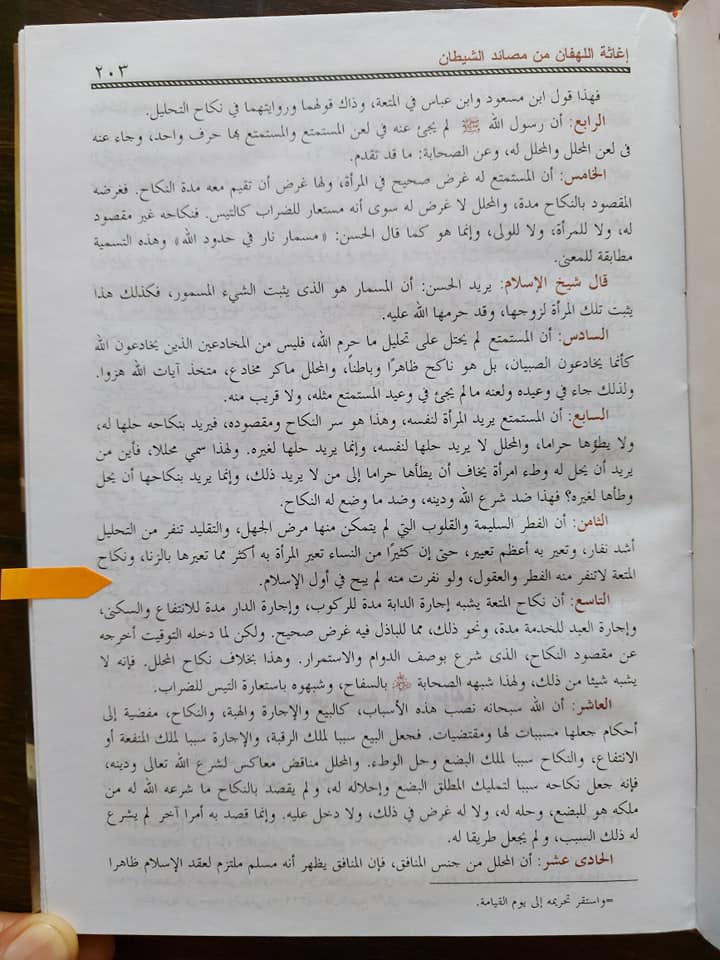 إغاثة اللهفان من مصائد الشيطان
٢٠٣
فهذا قول ابن مسعود وابن عباس في المتعة، وذاك قولهما وروايتهما في نكاح التحليل.
الرابع: أن رسول الله ﷺ لم يجئ عنه في لعن المستمتع والمستمتع بها حرف واحد، وجاء عنه
فى لعن المحلل والمحلل له، وعن الصحابة: ما قد تقدم.
الخامس: أن المستمتع له غرض صحيح في المرأة، ولها غرض أن تقيم معه مدة النكاح. فغرضه
المقصود بالنكاح مدة، والمحلل لا غرض له سوى أنه مستعار للضراب كالتيس. فنكاحه غير مقصود
له، ولا للمرأة، ولا للولى، وإنما هو كما قال الحسن: «مسمار نار في حدود الله» وهذه التسمية
مطابقة للمعنى.
قال شيخ الإسلام: يريد الحسن: أن المسمار هو الذى يثبت الشيء المسمور، فكذلك هذا
يثبت تلك المرأة لزوجها، وقد حرمها الله عليه.
السادس: أن المستمتع لم يحتل على تحليل ما حرم الله، فليس من المخادعين الذين يخادعون الله
كأنما يخادعون الصبيان، بل هو ناكح ظاهرًا وباطناً، والمحلل ماكر مخادع، متخذ آيات الله هزوا.
ولذلك جاء في وعيده ولعنه مالم يجئ في وعيد المستمتع مثله، ولا قريب منه.
السابع: أن المستمتع يريد المرأة لنفسه، وهذا هو سر النكاح ومقصوده، فيريد بنكاحه حلها له،
ولا يطؤها حراما، والمحلل لا يريد حلها لنفسه، وإنما يريد حلها لغيره. ولهذا سمي محللا، فأين من
يريد أن يحل له وطء امرأة يخاف أن يطأها حراما إلى من لا يريد ذلك، وإنما يريد بنكاحها أن يحل
وطأها لغيره؟ فهذا ضد شرع الله ودينه، وضد ما وضع له النكاح.
الثامن: أن الفطر السليمة والقلوب التي لم يتمكن منها مرض الجهل، والتقليد تنفر من التحليل
أشد نفار، وتعير به أعظم تعيير، حتى إن كثيرًا من النساء تعير المرأة به أكثر مما تعيرها بالزنا، ونكاح
المتعة لاتنفر منه الفطر والعقول، ولو نفرت منه لم يبح في أول الإسلام.
التاسع: أن نكاح المتعة يشبه إجارة الدابة مدة للركوب، وإجارة الدار مدة للانتفاع والسكنى،
وإجارة العبد للخدمة مدة، ونحو ذلك، مما للباذل فيه غرض صحيح. ولكن لما دخله التوقيت أخرجه
عن مقصود النكاح، الذى شرع بوصف الدوام والاستمرار. وهذا بخلاف نكاح المحلل. فإنه لا
يشبه شيئا من ذلك، ولهذا شبهه الصحابة بالسفاح، وشبهوه باستعارة التيس للضراب.
العاشر: أن الله سبحانه نصب هذه الأسباب، كالبيع والإجارة والهبة، والنكاح، مفضية إلى
أحكام جعلها مسببات لها ومقتضيات. فجعل البيع سببا لملك الرقبة، والإجارة سببا لملك المنفعة أو
الانتفاع، والنكاح سببا لملك البضع وحل الوطء. والمحلل مناقض معاكس لشرع الله تعالى ودينه،
فإنه جعل نكاحه سببا لتمليك المطلق البضع وإحلاله له، ولم يقصد بالنكاح ما شرعه الله له من
ملكه هو للبضع، وحله له، ولا له غرض في ذلك، ولا دخل عليه. وإنما قصد به أمرا آخر لم يشرع
له ذلك السبب، ولم يجعل طريقا له.
الحادى عشر: أن المحلل من جنس المنافق، فإن المنافق يظهر أنه مسلم ملتزم لعقد الإسلام ظاهرا
=واستقر تحريمه إلى يوم القيامة.